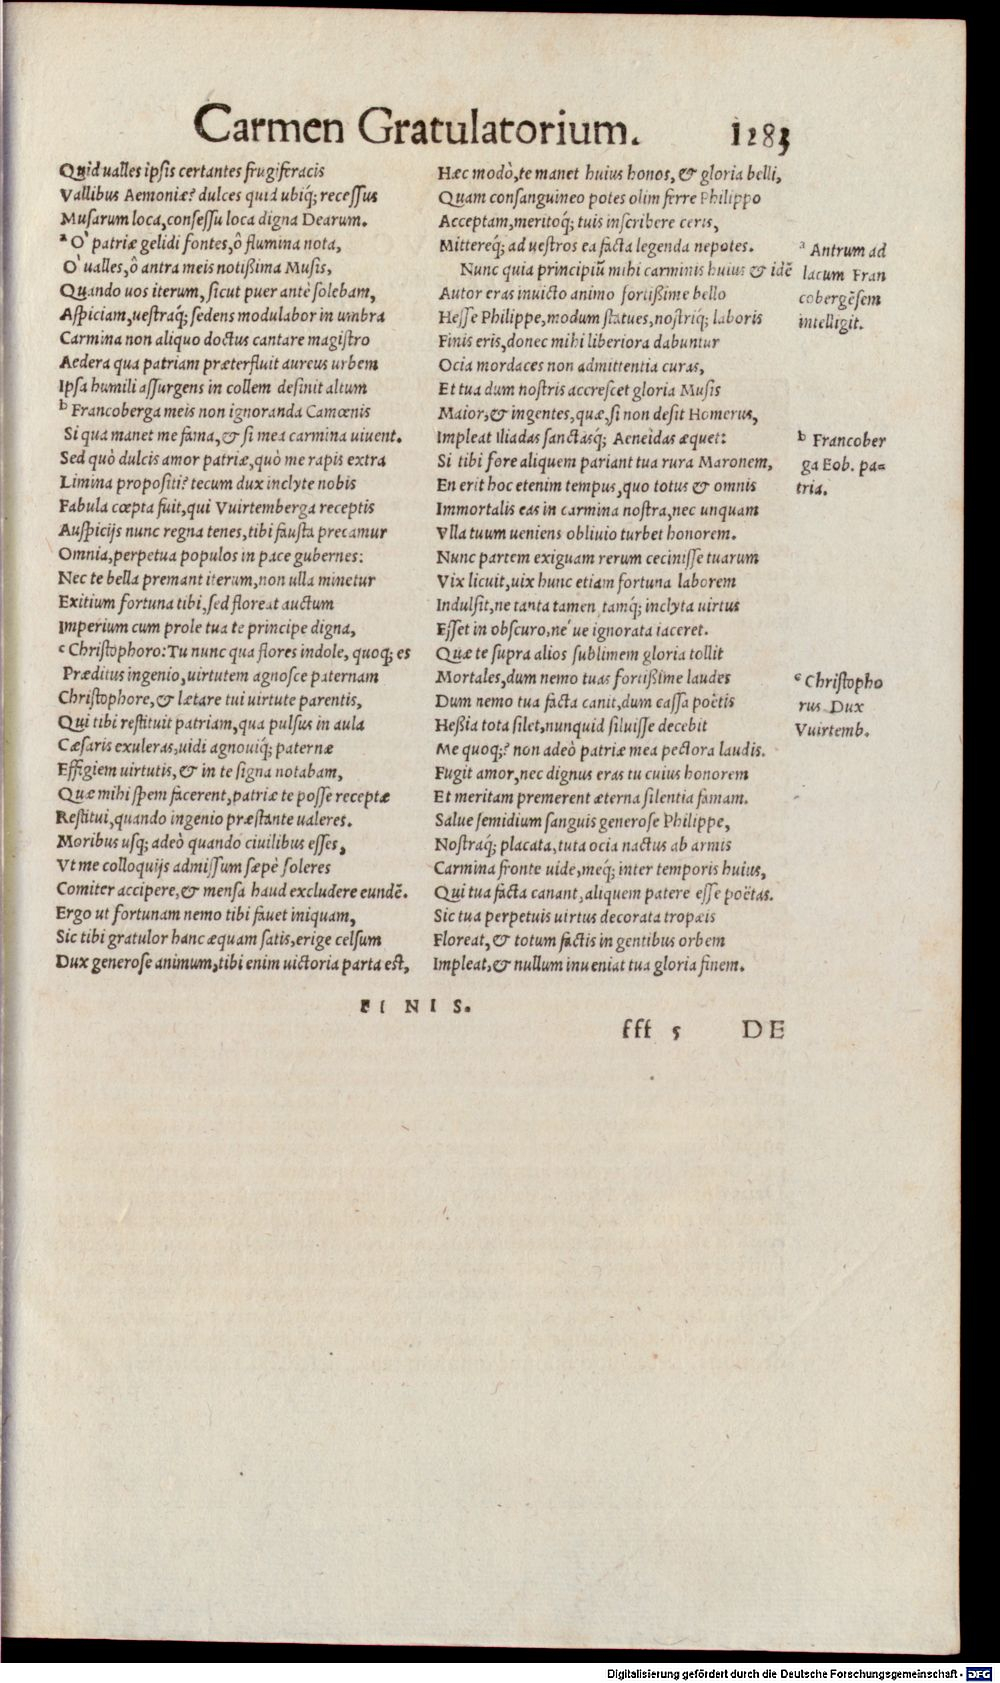 Carmen Gratulatorium. 1283
Quid ualles ipsis certantes frugiferacis
Vallibus Aemoniæ? dulces quid ubiq́; recessus
Musarum loca, consessu loca digna Dearum.
ᵃ O' patriæ gelidi fontes, ô flumina nota,
O' ualles, ô antra meis notißima Musis,
Quando uos iterum, sicut puer antè solebam,
Aspiciam, uestraq́; sedens modulabor in umbra
Carmina non aliquo doctus cantare magistro
Aedera qua patriam præterfluit aureus urbem
Ipsa humili assurgens in collem desinit altum
ᵇ Francoberga meis non ignoranda Camœnis
Si qua manet me fama, & si mea carmina uiuent.
Sed quò dulcis amor patriæ, quò me rapis extra
Limina propositi? tecum dux inclyte nobis
Fabula cœpta fuit, qui Vuirtemberga receptis
Auspicijs nunc regna tenes, tibi fausta precamur
Omnia, perpetua populos in pace gubernes:
Nec te bella premant iterum, non ulla minetur
Exitium fortuna tibi, sed floreat auctum
Imperium cum prole tua te principe digna,
ᶜ Christophoro: Tu nunc qua flores indole, quoq; es
Præditus ingenio, uirtutem agnosce paternam
Christophore, & lætare tui uirtute parentis,
Qui tibi restituit patriam, qua pulsus in aula
Cæsaris exuleras, uidi agnouiq́; paternæ
Effigiem uirtutis, & in te signa notabam,
Quæ mihi spem facerent, patriæ te posse receptæ
Restitui, quando ingenio præstante ualeres.
Moribus usq; adeò quando ciuilibus esses,
Vt me colloquijs admissum sæpè soleres
Comiter accipere, & mensa haud excludere eundē.
Ergo ut fortunam nemo tibi fauet iniquam,
Sic tibi gratulor hanc æquam satis, erige celsum
Dux generose animum, tibi enim uictoria parta est,
Hæc modò, te manet huius honos, & gloria belli,
Quam consanguineo potes olim ferre Philippo
Acceptam, meritoq́; tuis inscribere ceris,
Mittereq́; ad uestros ea facta legenda nepotes.
Nunc quia principiū mihi carminis huius & idē
Autor eras inuicto animo fortißime bello
Hesse Philippe, modum statues, nostriq́; laboris
Finis eris, donec mihi liberiora dabuntur
Ocia mordaces non admittentia curas,
Et tua dum nostris accrescet gloria Musis
Maior, & ingentes, quæ, si non desit Homerus,
Impleat Iliadas sanctasq́; Aeneidas æquet:
Si tibi fore aliquem pariant tua rura Maronem,
En erit hoc etenim tempus, quo totus & omnis
Immortalis eas in carmina nostra, nec unquam
Vlla tuum ueniens obliuio turbet honorem.
Nunc partem exiguam rerum cecinisse tuarum
Vix licuit, uix hunc etiam fortuna laborem
Indulsit, ne tanta tamen tamq́; inclyta uirtus
Esset in obscuro, né ue ignorata iaceret.
Quæ te supra alios sublimem gloria tollit
Mortales, dum nemo tuas fortißime laudes
Dum nemo tua facta canit, dum cassa poëtis
Heßia tota silet, nunquid siluisse decebit
Me quoq;? non adeò patriæ mea pectora laudis.
Fugit amor, nec dignus eras tu cuius honorem
Et meritam premerent æterna silentia famam.
Salue semidium sanguis generose Philippe,
Nostraq́; placata, tuta ocia nactus ab armis
Carmina fronte uide, meq́; inter temporis huius,
Qui tua facta canant, aliquem patere esse poëtas.
Sic tua perpetuis uirtus decorata tropæis
Floreat, & totum factis ingentibus orbem
Impleat, & nullum inueniat tua gloria finem.
ᵃ Antrum ad
lacum Fran
cobergēsem
intelligit.
ᵇ Francober
ga Eob. pa=
tria.
ᶜ Christopho
rus Dux
Vuirtemb.
FINIS.
fff 5 DE
Digitalisierung gefördert durch die Deutsche Forschungsgemeinschaft - DFG